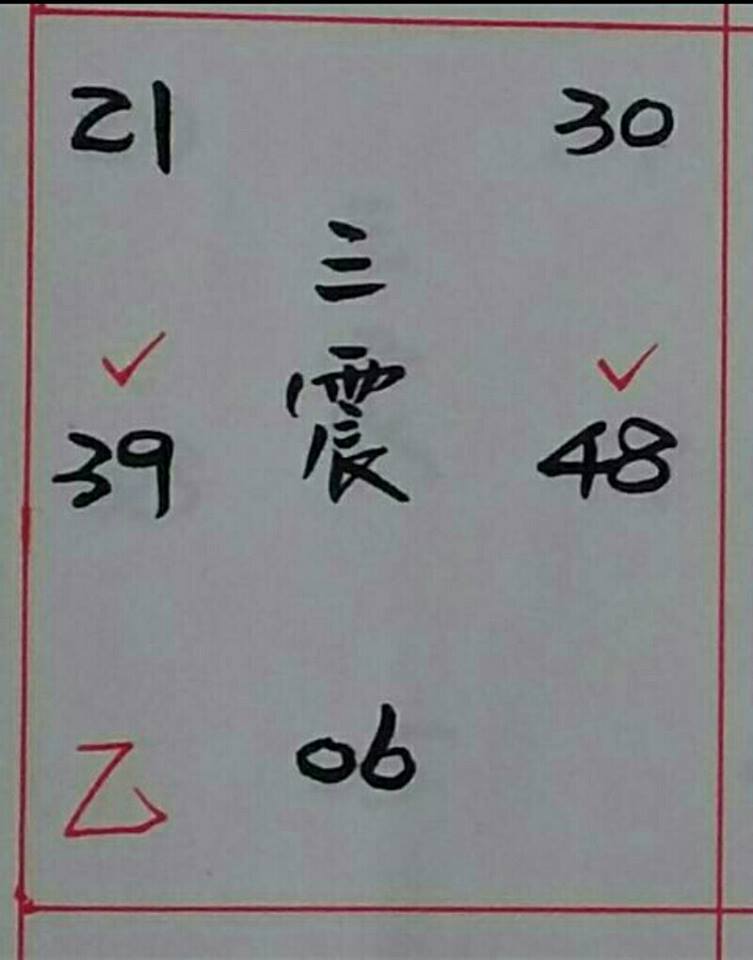 21 30
三
震
✓ ✓
39 48
06
乙